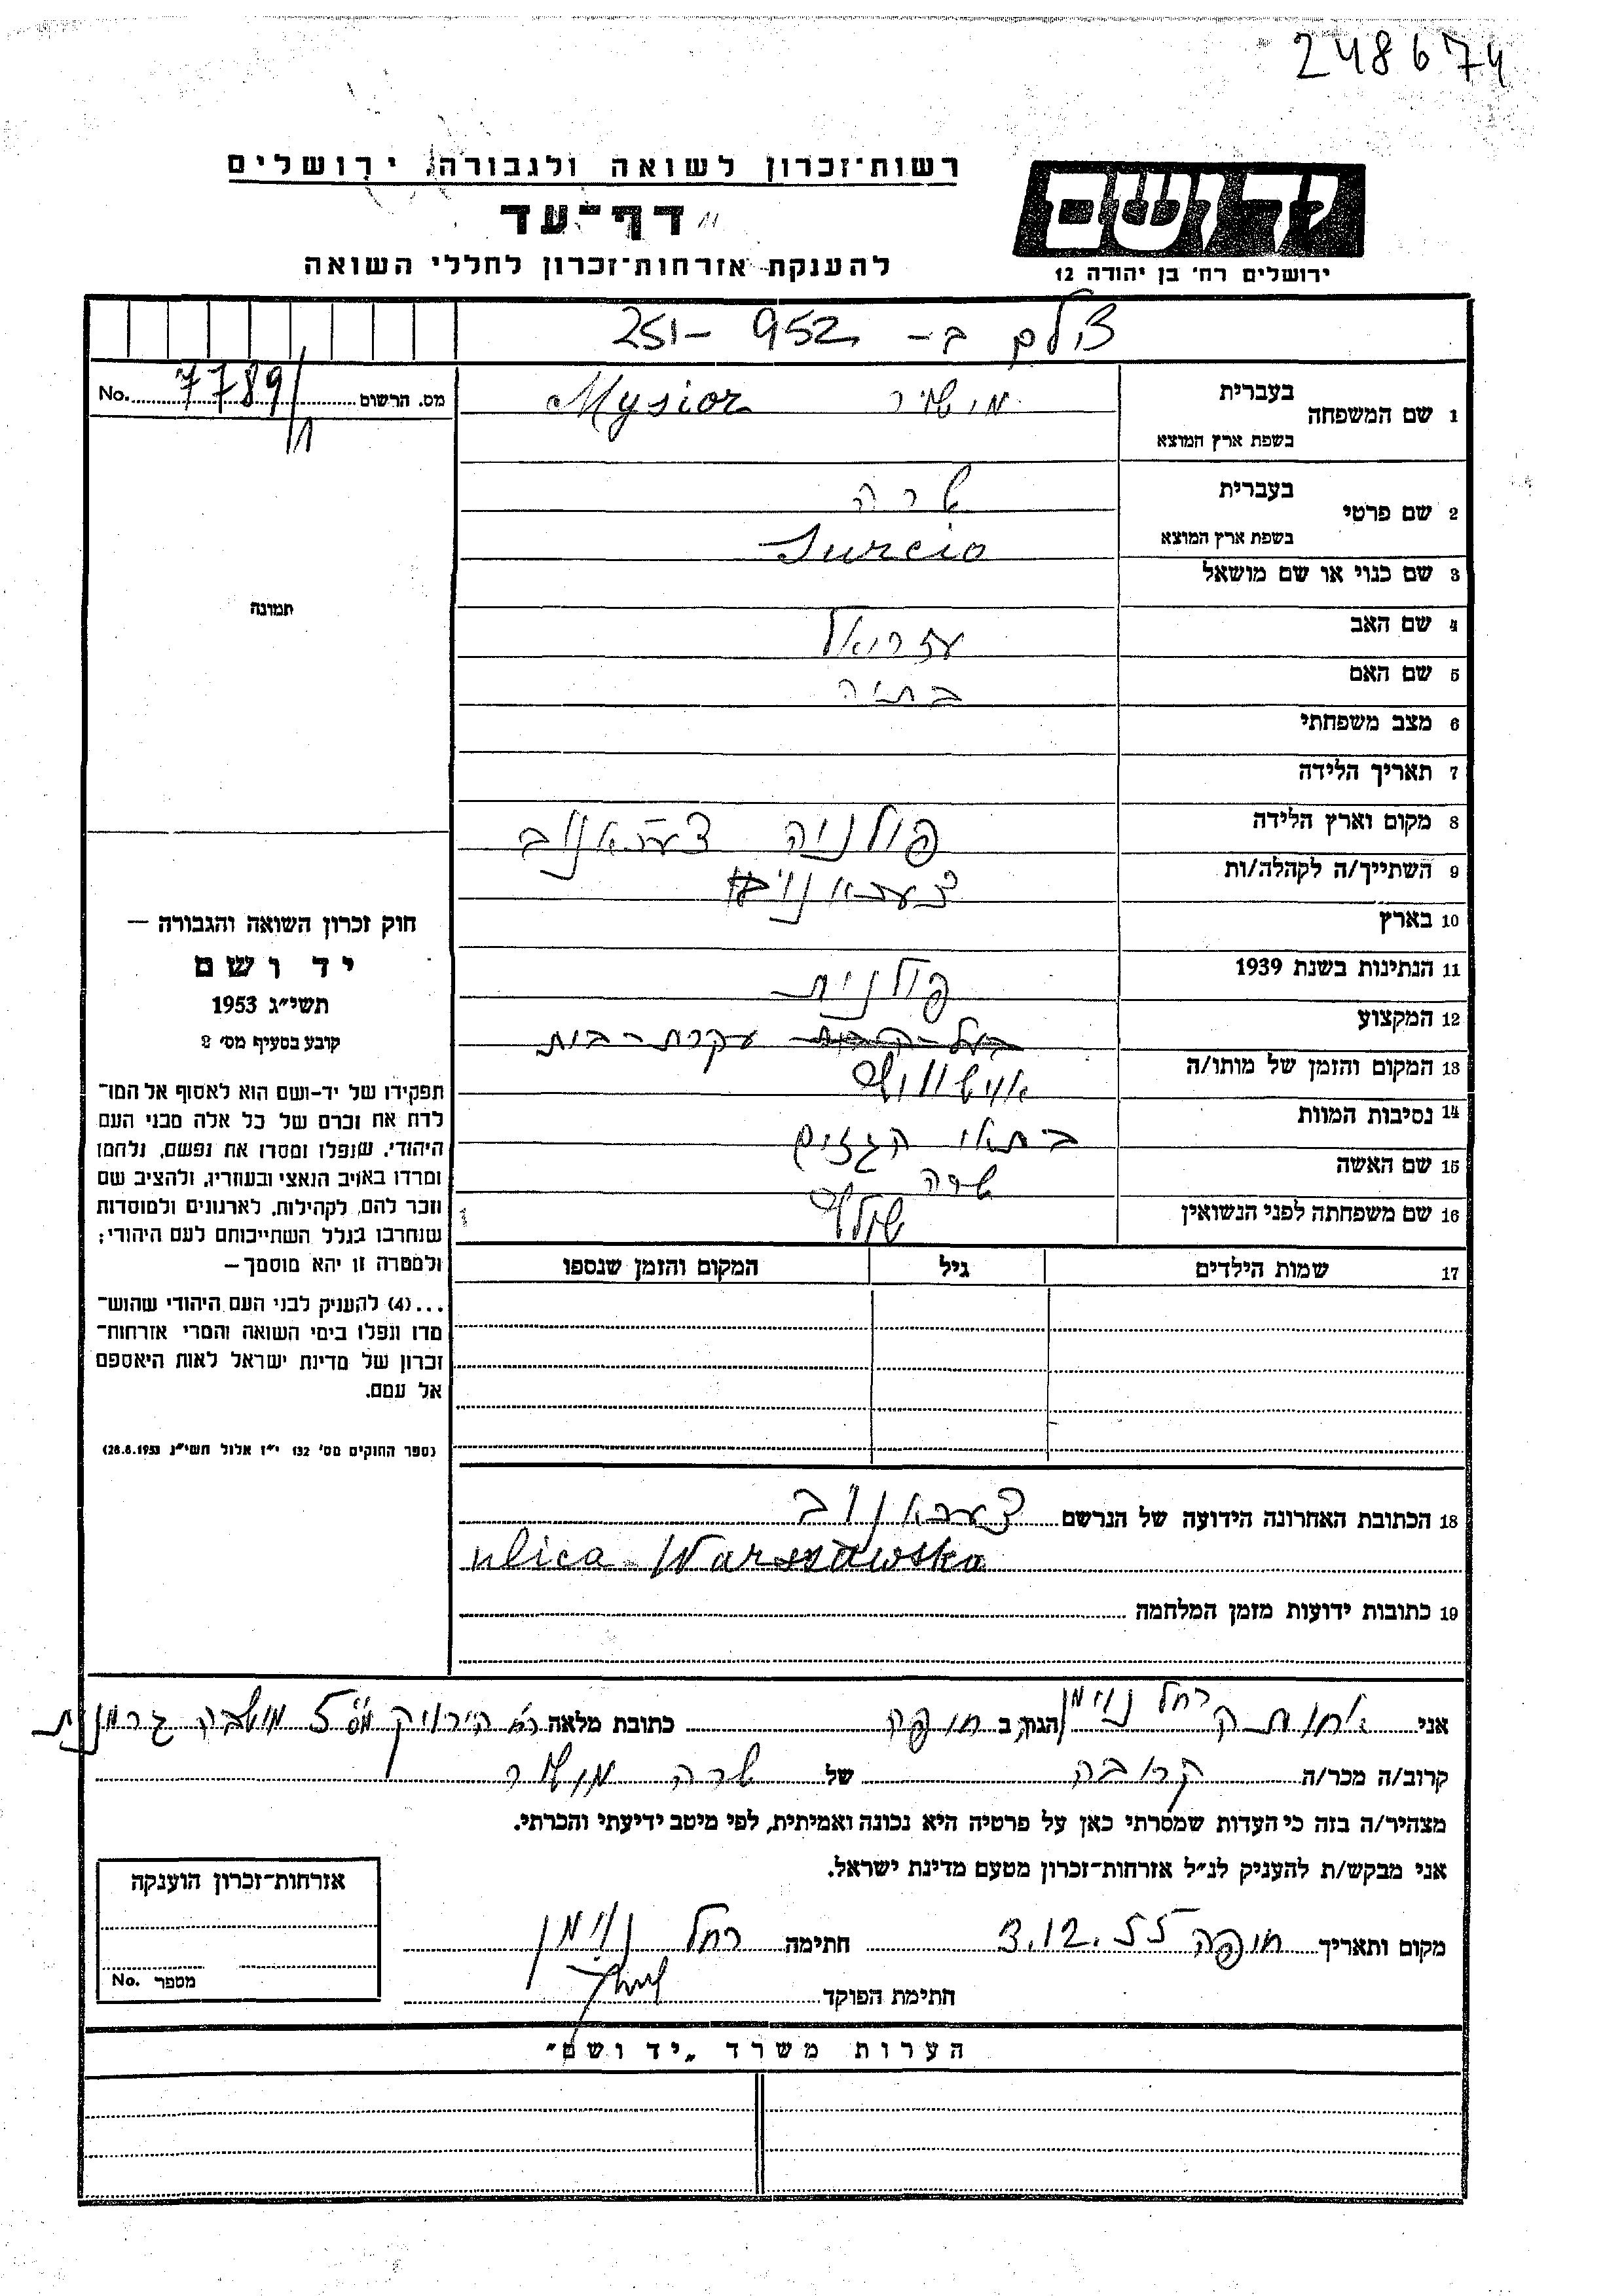 248674
רשות־זכרון לשואה ולגבורה, ירושלים
דף־עד
להענקת אזרחות־זכרון לחללי השואה
יד ושם
ירושלים רח' בן יהודה 12
צולם ב- 952 -251
No. 7789 מס. הרשום
1 שם המשפחה
בעברית
מישיור Mysior
בשפת ארץ המוצא
2 שם פרטי
בעברית
שרה
בשפת ארץ המוצא
Surcia
3 שם כנוי או שם מושאל
4 שם האב עזריאל
5 שם האם בתיה
6 מצב משפחתי
7 תאריך הלידה
8 מקום וארץ הלידה פולניה
9 השתייך/ה לקהלה/ות
10 בארץ
11 הנתינות בשנת 1939 פולנית
12 המקצוע עקרת-בית
13 המקום והזמן של מותו/ה
14 נסיבות המוות בתאי הגזים
15 שם האשה שרה
16 שם משפחתה לפני הנשואין
17 שמות הילדים גיל המקום והזמן שנספו
תמונה
חוק זכרון השואה והגבורה —
יד ושם
תשי״ג 1953
קובע בסעיף מס' 2
תפקידו של יד-ושם הוא לאסוף אל המו־
לדת את זכרם של כל אלה מבני העם
היהודי, שנפלו ומסרו את נפשם, נלחמו
ומרדו באויב הנאצי ובעוזריו, ולהציב שם
וזכר להם, לקהילות, לארגונים ולמוסדות
שנחרבו בגלל השתייכותם לעם היהודי;
ולמטרה זו יהא מוסמך —
...(4) להעניק לבני העם היהודי שהוש־
מדו ונפלו בימי השואה והמרי אזרחות־
זכרון של מדינת ישראל לאות היאספם
אל עמם.
(ספר החוקים מס' 132 י״ז אלול תשי״ג 28.8.1953)
18 הכתובת האחרונה הידועה של הנרשם
ulica Warszawska
19 כתובות ידועות מזמן המלחמה
אני רחל נוימן הגר ב חיפה כתובת מלאה 5 מושבה גרמנית
קרוב/ה מכר/ה קרובה של שרה מישיור
מצהיר/ה בזה כי העדות שמסרתי כאן על פרטיה היא נכונה ואמיתית, לפי מיטב ידיעתי והכרתי.
אני מבקש/ת להעניק לנ״ל אזרחות־זכרון מטעם מדינת ישראל.
מקום ותאריך חיפה 3.12.55 חתימה רחל נוימן
חתימת הפוקד
אזרחות־זכרון הוענקה
מספר No.
הערות משרד „יד ושם"